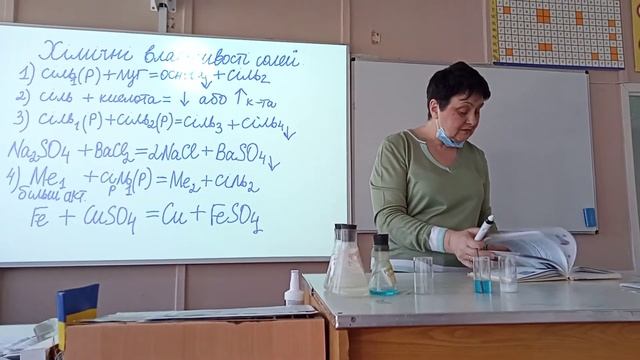 Хімічні властивості солей
1) сіль₁(р) + луг = основа↓ + сіль₂
2) сіль + кислота = ↓ або ↑ к-та
3) Сіль₁(р) + сіль₂(р) = сіль₃ + сіль₄↓
Na₂SO₄ + BaCl₂ = 2NaCl + BaSO₄↓
4) Me₁ + сіль₁(р) = Me₂ + сіль₂
більш акт. р
Fe + CuSO₄ = Cu + FeSO₄